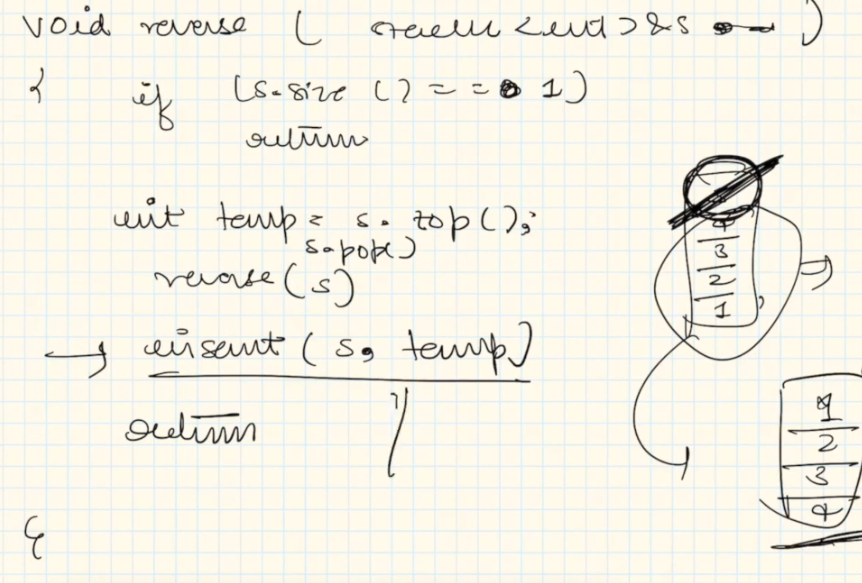 void reverse ( stack <int> &s )
{ if (s.size () == 1)
return
int temp = s. top();
s.pop()
reverse(s)
→ insert ( s, temp)
return }
4
3
2
1
1
2
3
4